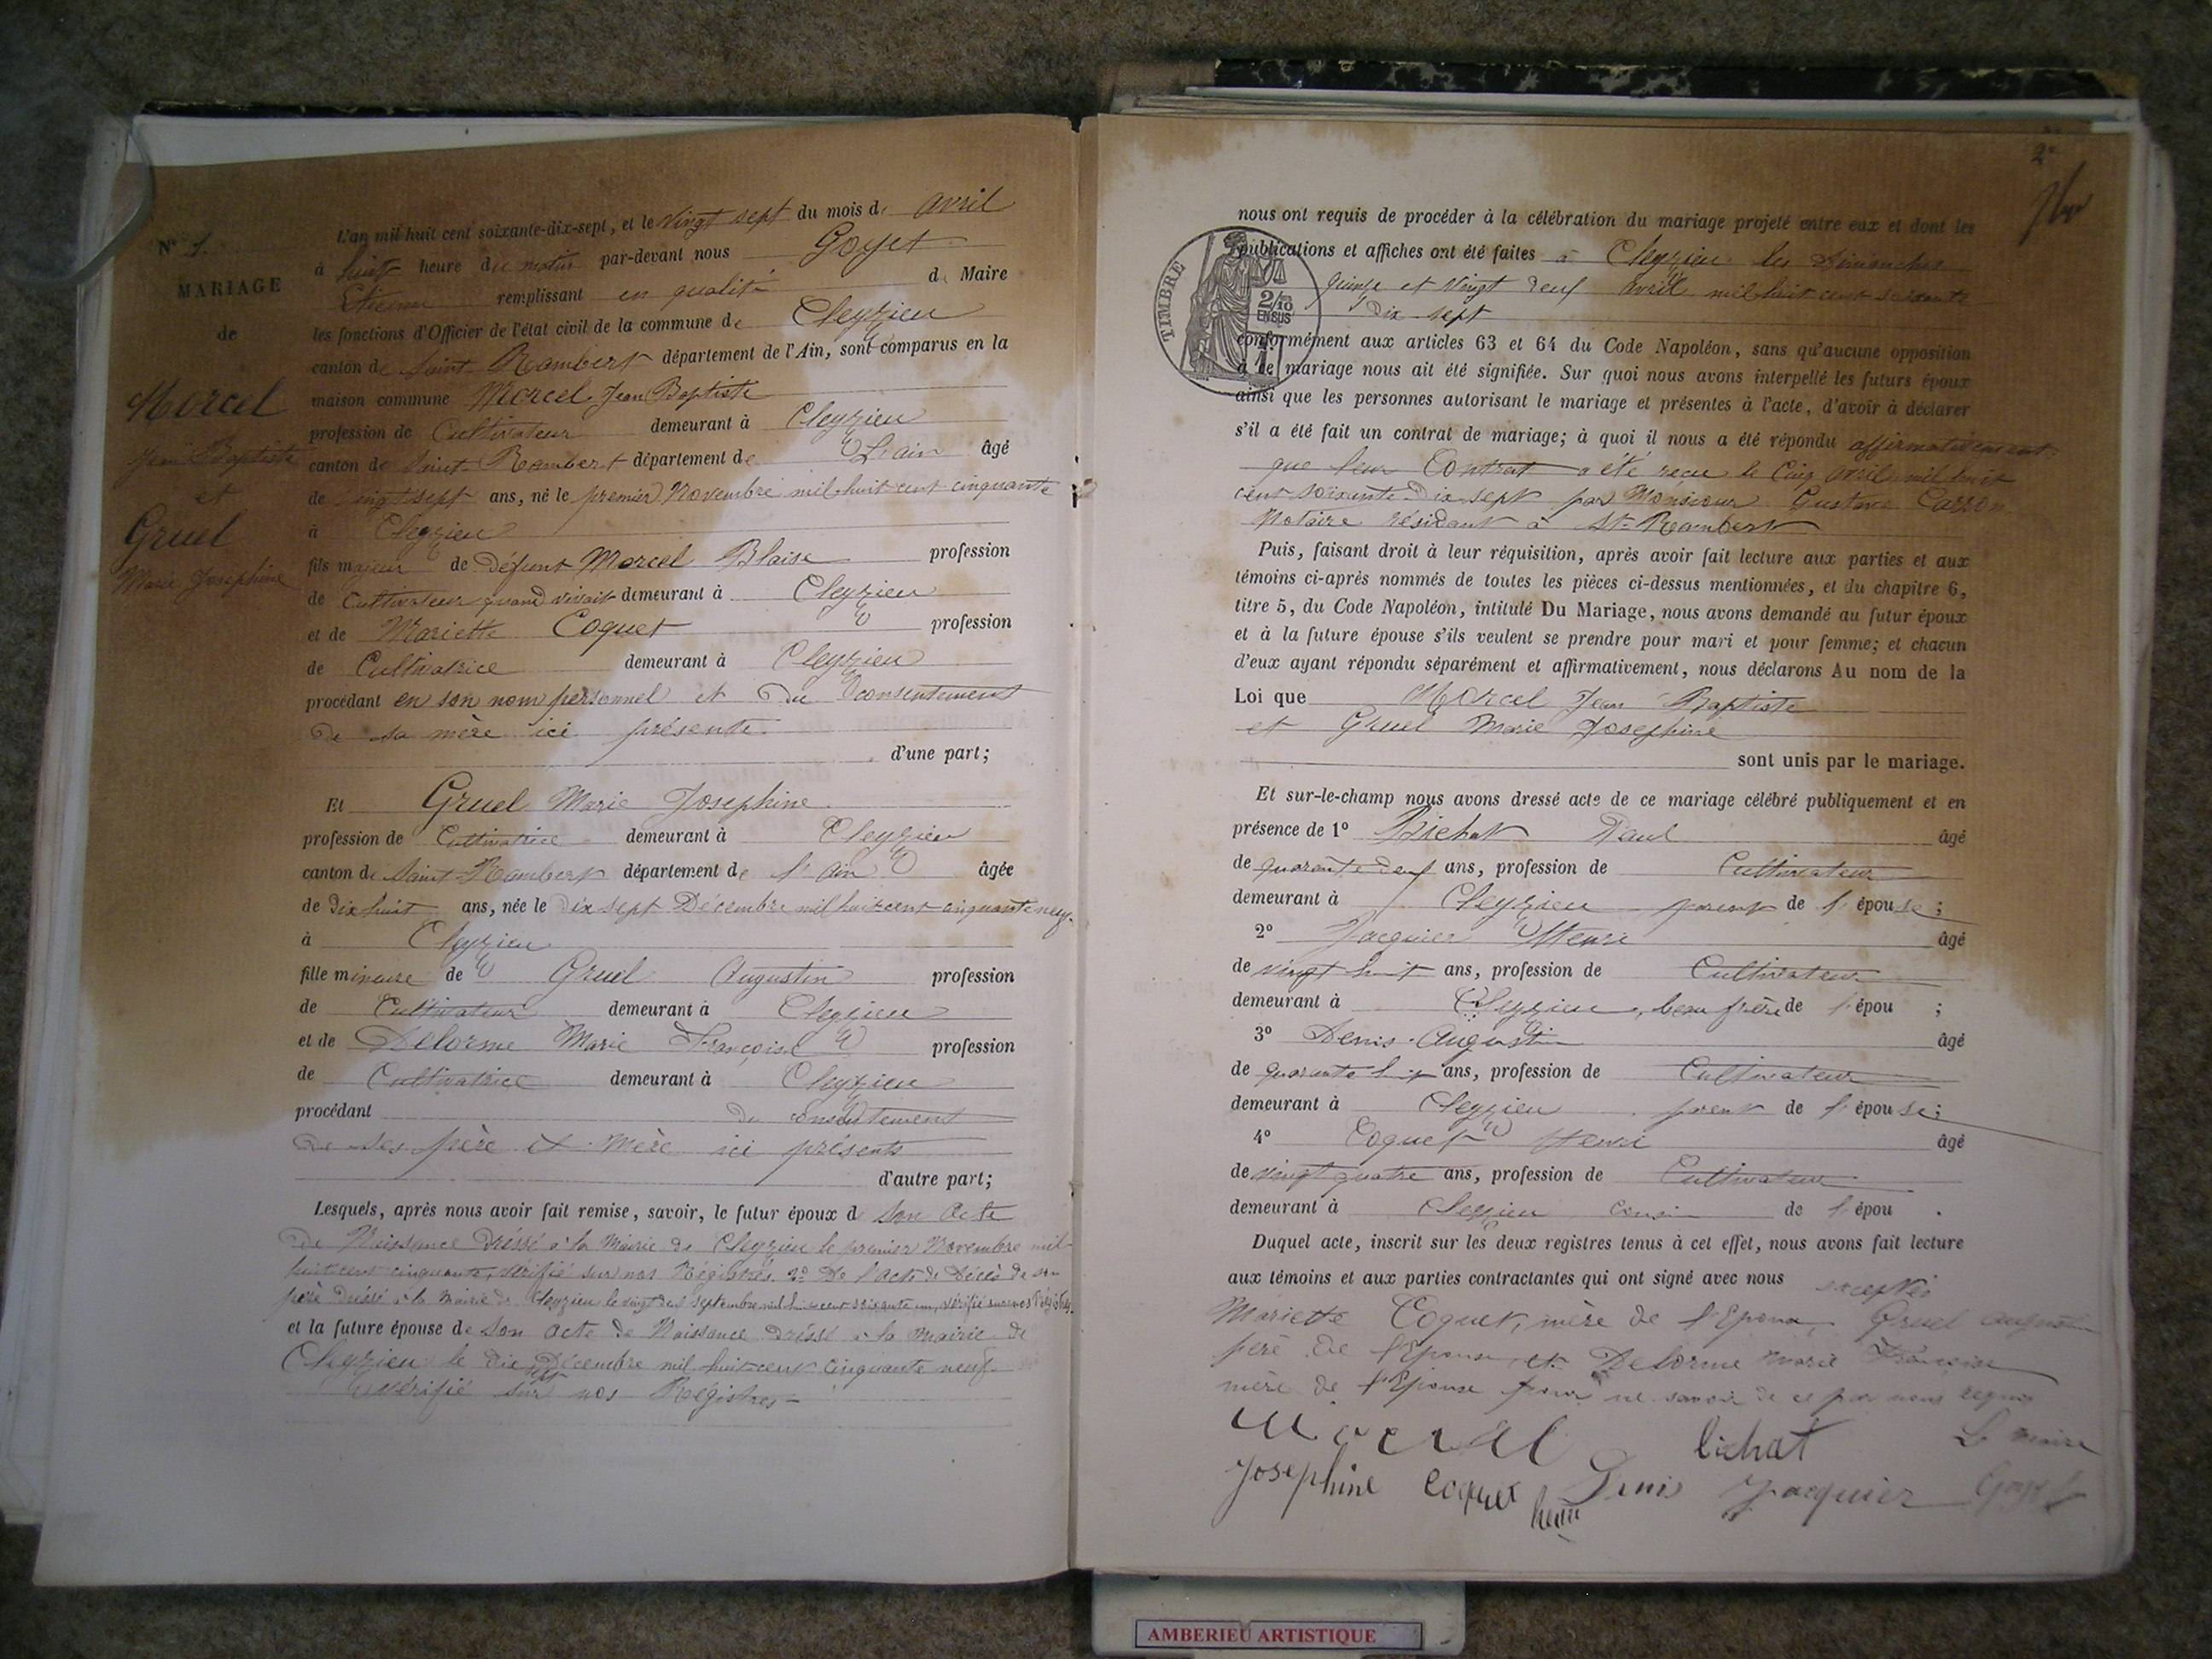 N° 1.
MARIAGE
de
Morcel
Jean Baptiste
et
Gruel
Marie Josephine
L'an mil huit cent soixante-dix-sept, et le Vingt sept du mois d' avril
à huit heure du matin par-devant nous Goyet
Etienne remplissant en qualité de Maire
les fonctions d'Officier de l'état civil de la commune de Cleyzieu
canton de Saint-Rambert département de l'Ain, sont comparus en la
maison commune Morcel Jean Baptiste
profession de Cultivateur demeurant à Cleyzieu
canton de Saint-Rambert département de L'ain âgé
de vingt sept ans, né le premier Novembre mil huit cent cinquante
à Cleyzieu
fils majeur de Défunt Morcel Blaise profession
de Cultivateur quand vivait demeurant à Cleyzieu
et de Mariette Coquet profession
de Cultivatrice demeurant à Cleyzieu
procédant en son nom personnel et du consentement
de sa mère ici présente.
d'une part;
Et Gruel Marie Josephine
profession de Cultivatrice demeurant à Cleyzieu
canton de Saint-Rambert département de l'Ain âgée
de Dix huit ans, née le dix sept Décembre mil huit cent cinquante neuf
à Cleyzieu
fille mineure de Gruel Augustin profession
de Cultivateur demeurant à Cleyzieu
et de Delorme Marie Françoise profession
de Cultivatrice demeurant à Cleyzieu
procédant du consentement
de ses père et mère ici présents
d'autre part;
Lesquels, après nous avoir fait remise, savoir, le futur époux d son acte
de Naissance dréssé à la Mairie de Cleyzieu le premier Novembre mil
huit cent cinquante, vérifié sur nos Régistres. 2° De l'acte de Décès de son
père dréssé à la Mairie de Cleyzieu le vingt deux septembre mil huit cent soixante un, vérifié sur nos Régistres.
et la future épouse de son acte de Naissance dréssé à la Mairie de
Cleyzieu le dix sept Décembre mil huit cent cinquante neuf
vérifié sur nos Régistres
2e
TIMBRE
2/10
EN SUS
nous ont requis de procéder à la célébration du mariage projeté entre eux et dont les
publications et affiches ont été faites à Cleyzieu les Dimanches
quinze et vingt deux avril mil huit cent soixante
dix sept
conformément aux articles 63 et 64 du Code Napoléon, sans qu'aucune opposition
à ce mariage nous ait été signifiée. Sur quoi nous avons interpellé les futurs époux
ainsi que les personnes autorisant le mariage et présentes à l'acte, d'avoir à déclarer
s'il a été fait un contrat de mariage; à quoi il nous a été répondu affirmativement
que leur Contrat a été reçu le Cinq avril mil huit
cent soixante-dix-sept par Monsieur Gustave Carron
Notaire résidant à St-Rambert
Puis, faisant droit à leur réquisition, après avoir fait lecture aux parties et aux
témoins ci-après nommés de toutes les pièces ci-dessus mentionnées, et du chapitre 6,
titre 5, du Code Napoléon, intitulé Du Mariage, nous avons demandé au futur époux
et à la future épouse s'ils veulent se prendre pour mari et pour femme; et chacun
d'eux ayant répondu séparément et affirmativement, nous déclarons Au nom de la
Loi que Morcel Jean Baptiste
et Gruel Marie Josephine
sont unis par le mariage.
Et sur-le-champ nous avons dressé acte de ce mariage célébré publiquement et en
présence de 1° Bichat Paul âgé
de quarante deux ans, profession de Cultivateur
demeurant à Cleyzieu parent de l'épouse;
2° Jacquier Henri âgé
de vingt huit ans, profession de Cultivateur
demeurant à Cleyzieu, beau frère de l'épou ;
3° Denis Augustin âgé
de quarante huit ans, profession de Cultivateur
demeurant à Cleyzieu parent de l'épouse;
4° Coquet Henri âgé
de vingt quatre ans, profession de Cultivateur
demeurant à Cleyzieu cousin de l'épou .
Duquel acte, inscrit sur les deux registres tenus à cet effet, nous avons fait lecture
aux témoins et aux parties contractantes qui ont signé avec nous exceptés
Mariette Coquet, mère de l'Epoux, Gruel Augustin
père de l'Epouse, et Delorme Marie Françoise
mère de l'Epouse pour ne savoir de ce par nous requis
Morcel bichat Le Maire
Josephine Coquet henri Denis Jacquier Goyet
AMBERIEU ARTISTIQUE